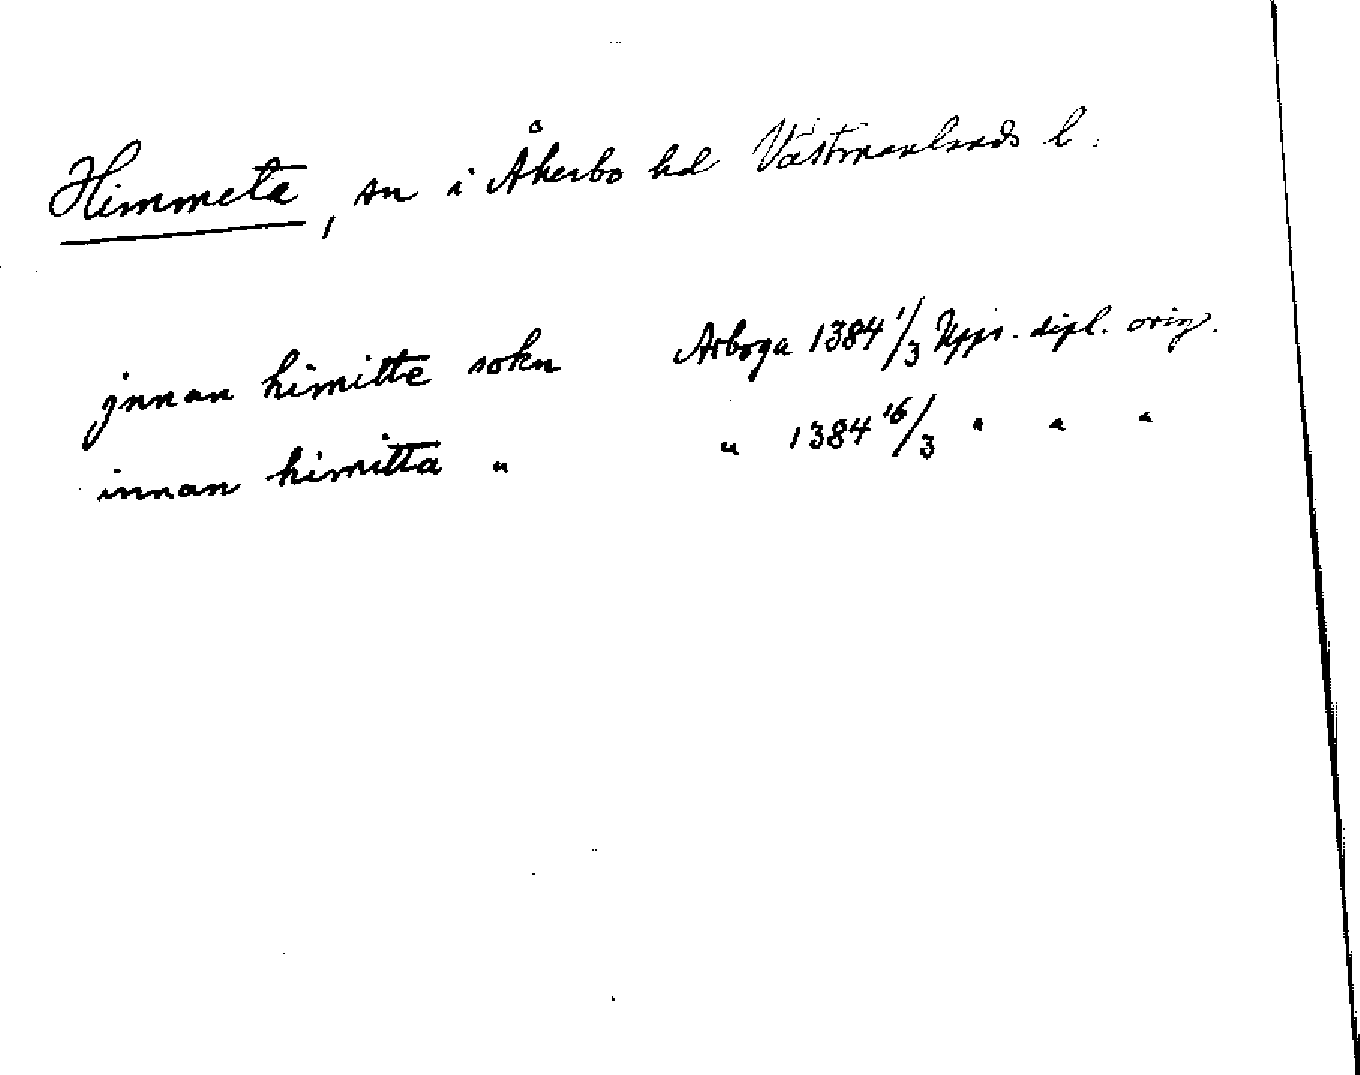 Himmeta, sn i Åkerbo hd Västmanlands l.
jnnan himitte sokn Arboga 1384 1/3 Upps. dipl. orig.
innan himitta " " 1384 16/3 " " "